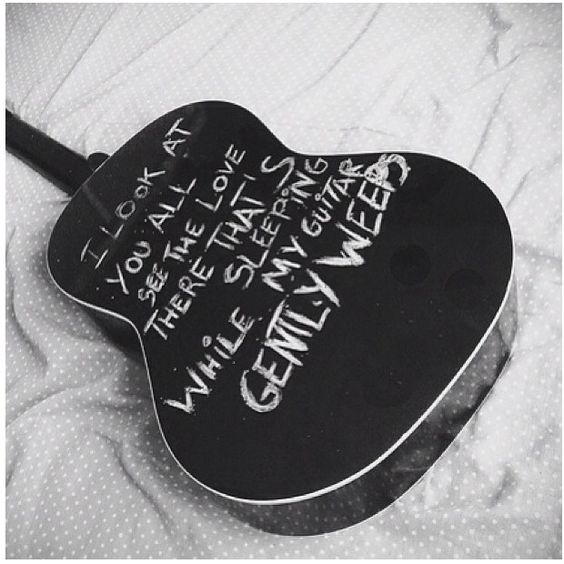 I LOOK AT
YOU ALL
SEE THE LOVE
THERE THAT'S
SLEEPING
WHILE MY GUITAR
GENTLY WEEPS